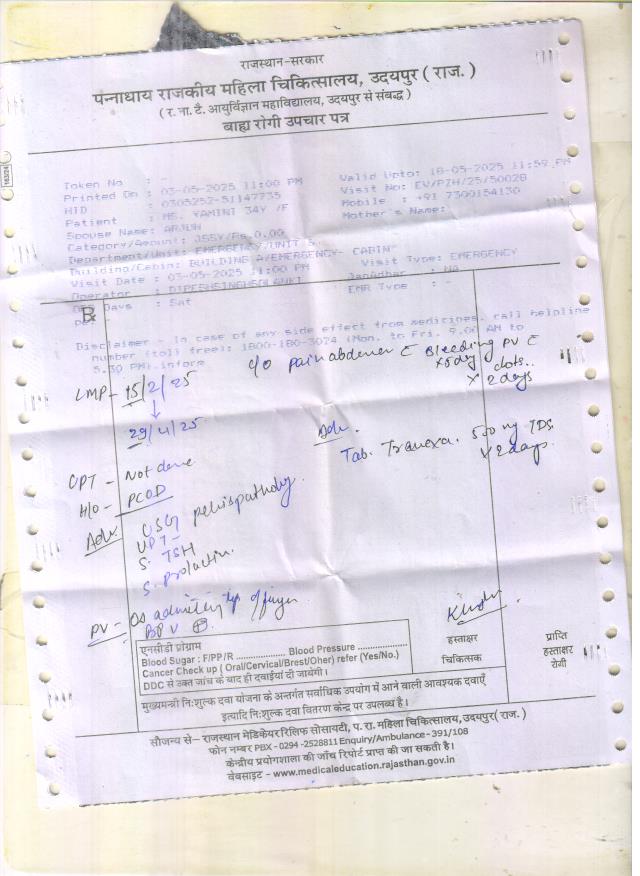 राजस्थान-सरकार
पन्नाधाय राजकीय महिला चिकित्सालय, उदयपुर ( राज. )
( र. ना. टै. आयुर्विज्ञान महाविद्यालय, उदयपुर से संबद्ध )
बाह्य रोगी उपचार पत्र
Token No : -
Printed On : 03-05-2025 11:00 PM
Valid Upto: 18-05-2025 11:59 PM
HID : 0305252-51147735
Visit No: EV/PZH/25/50028
Patient : MS. YAMINI 34Y /F
Mobile : +91 7300154130
Spouse Name: ARJUN
Mother's Name:
Category/Amount: JSSY/Rs 0.00
Department/Unit: EMERGENCY/UNIT 5
Building/Cabin: BUILDING A/EMERGENCY- CABIN
Visit Date : 03-05-2025 11:00 PM
Visit Type: EMERGENCY
Operator : DIPESHSINGHSOLANKI
Janadhar : NA
Days : Sat
EMR Type : -
Rx
Disclaimer - In case of any side effect from medicines, call helpline
number (toll free): 1800-180-3024 (Mon. to Fri. 9.00 AM to
5.30 PM).inform
c/o pain abdomen c Bleeding PV c
x5day clots..
x 2days
LMP- 15/2/25
29/4/25
Adv.
Tab. Tranexa. 500 mg TDS
x 2days.
UPT - Not done
H/o - PCOD
Adv.
USG pelvis pathology.
UPT -
S. TSH
S. Prolactin.
PV - Os admitting tip of finger
BPV ⊕
एनसीडी प्रोग्राम
Blood Sugar : F/PP/R .................... Blood Pressure ....................
Cancer Check up ( Oral/Cervical/Brest/Oher) refer (Yes/No.)
DDC से उक्त जांच के बाद ही दवाईयां दी जायेगी।
हस्ताक्षर
चिकित्सक
प्राप्ति
हस्ताक्षर
रोगी
मुख्यमन्त्री नि:शुल्क दवा योजना के अन्तर्गत सर्वाधिक उपयोग में आने वाली आवश्यक दवाएँ
इत्यादि नि:शुल्क दवा वितरण केन्द्र पर उपलब्ध है।
सौजन्य से– राजस्थान मेडिकेयर रिलिफ सोसायटी, प. रा. महिला चिकित्सालय,उदयपुर( राज. )
फोन नम्बर PBX - 0294 -2528811 Enquiry/Ambulance - 391/108
केन्द्रीय प्रयोगशाला की जाँच रिपोर्ट प्राप्त की जा सकती है।
वेबसाइट - www.medicaleducation.rajasthan.gov.in